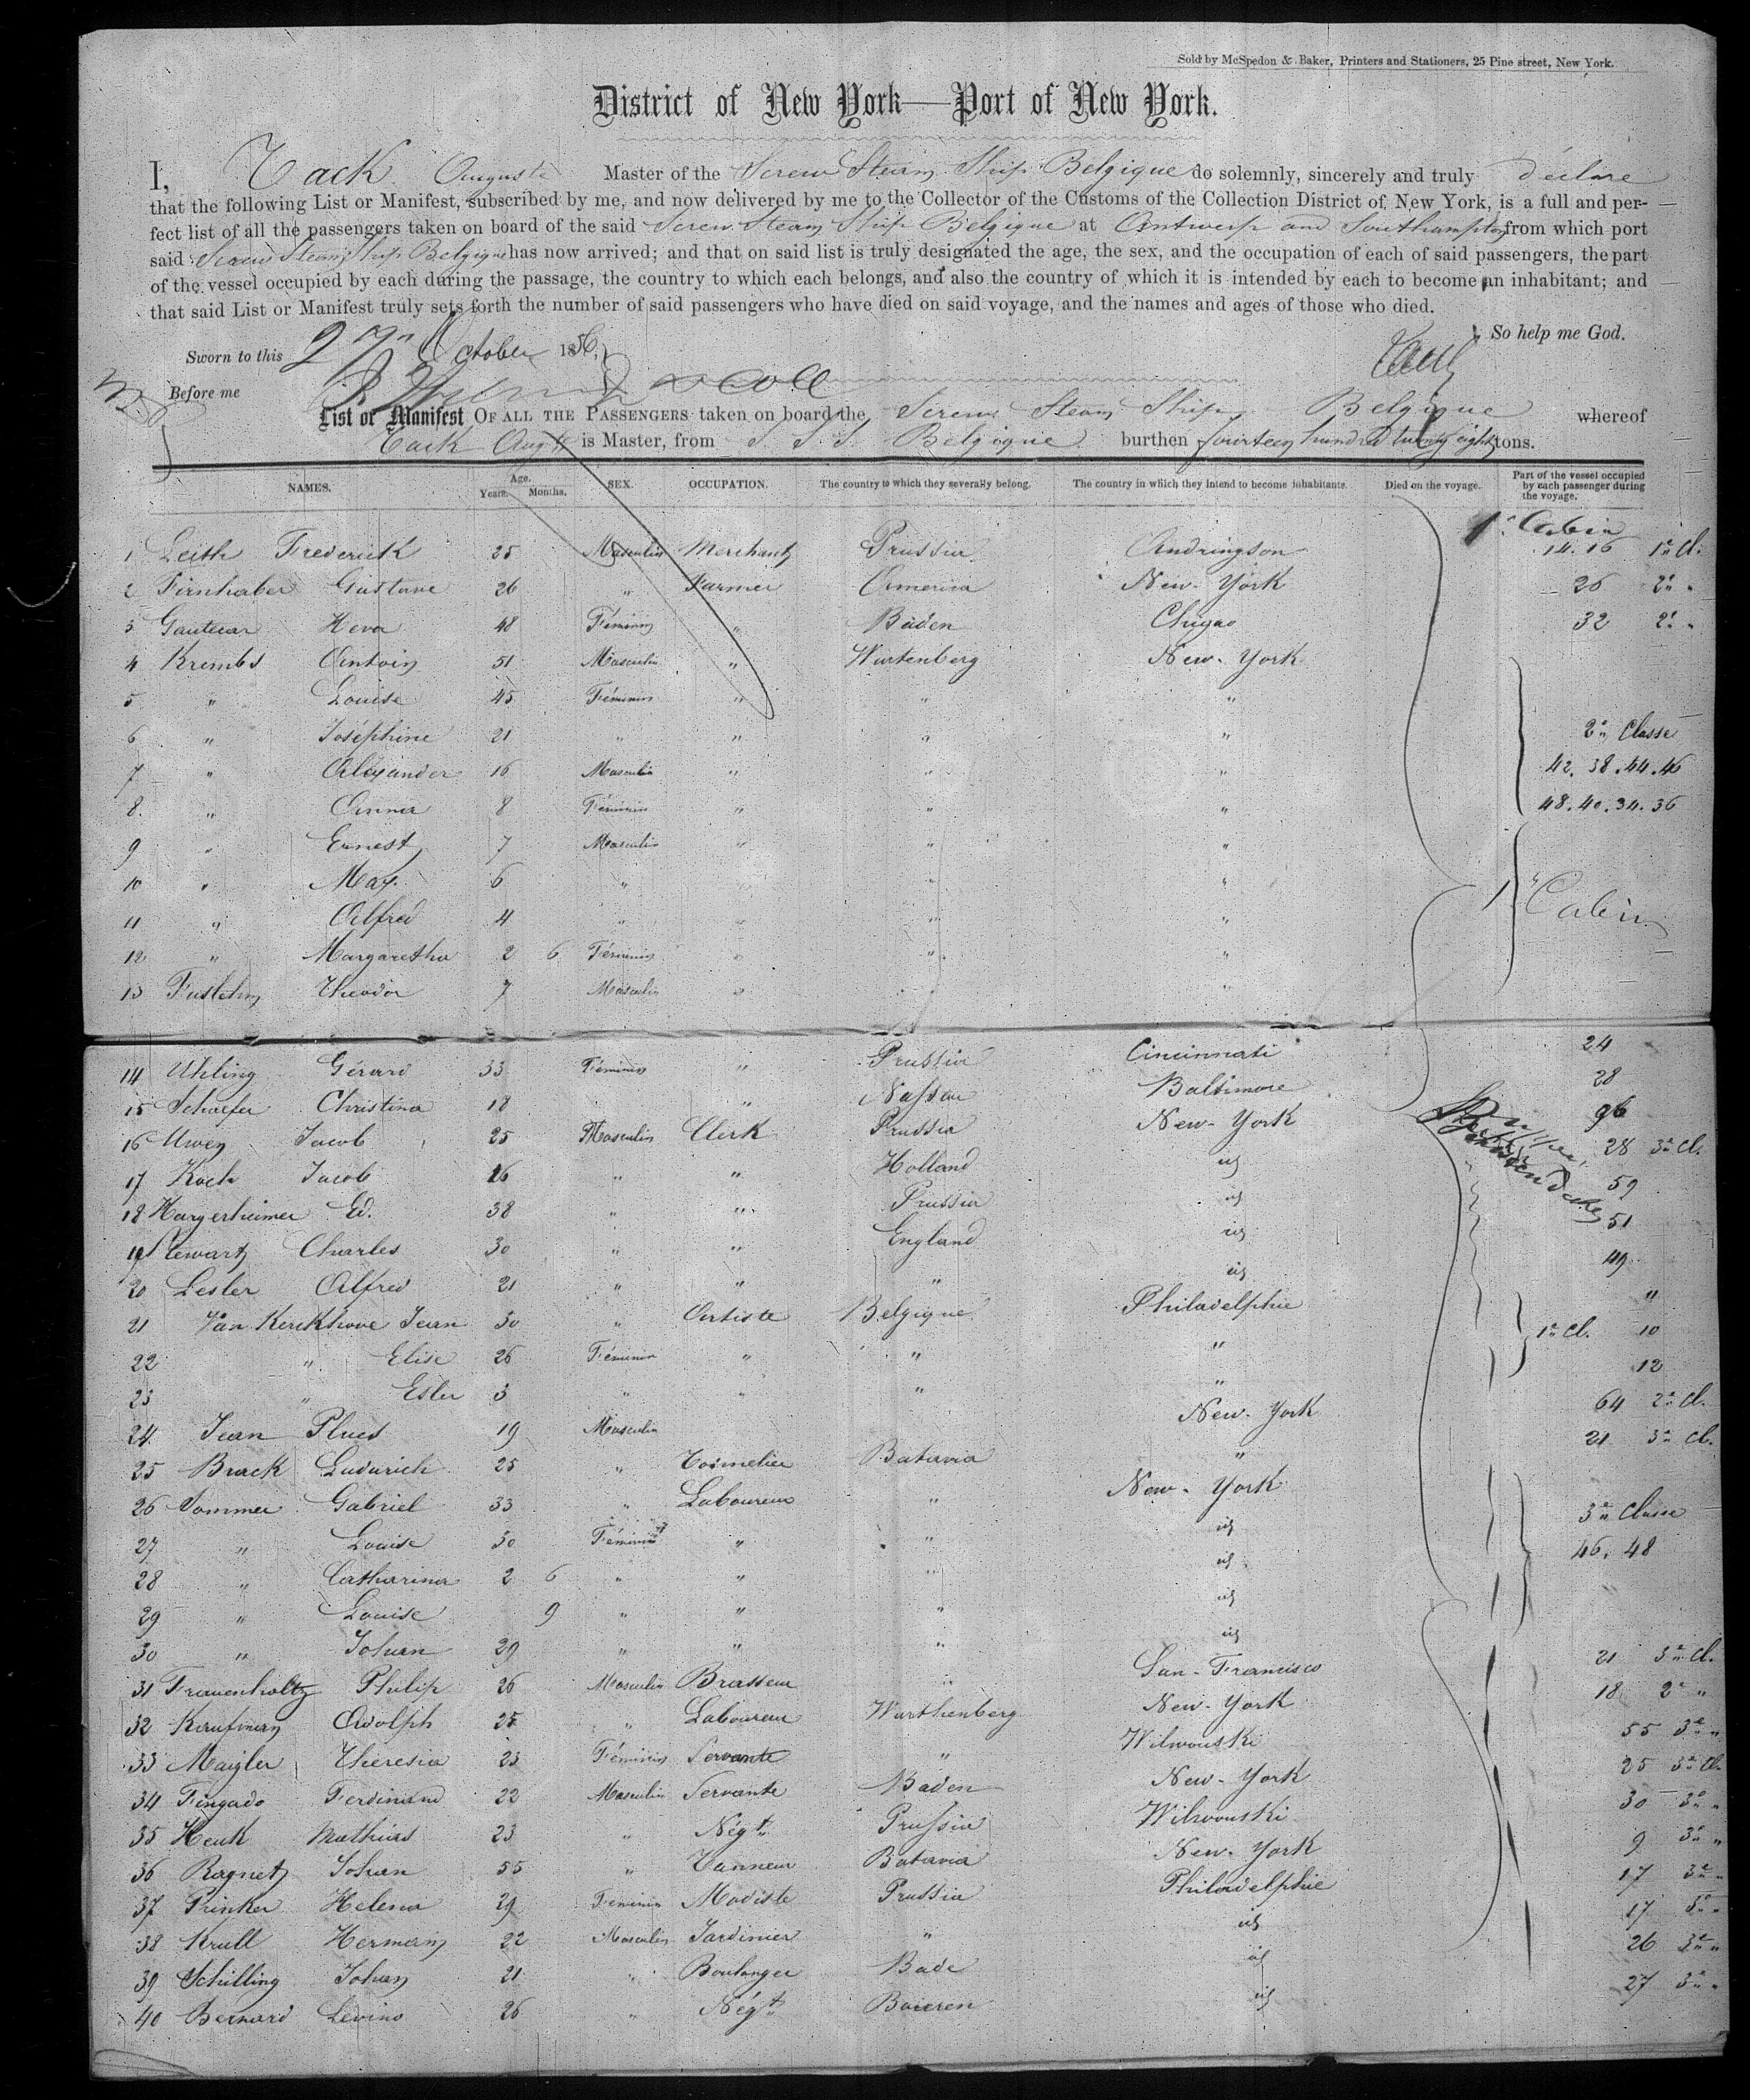 Sold by McSpedon & Baker, Printers and Stationers, 25 Pine street, New York.
District of New York—Port of New York.
I, Tack Auguste Master of the Screw Steam Ship Belgique do solemnly, sincerely and truly déclare
that the following List or Manifest, subscribed by me, and now delivered by me to the Collector of the Customs of the Collection District of New York, is a full and per-
fect list of all the passengers taken on board of the said Screw Steam Ship Belgique at Antwerp and Southampton from which port
said Screw Steam Ship Belgique has now arrived; and that on said list is truly designated the age, the sex, and the occupation of each of said passengers, the part
of the vessel occupied by each during the passage, the country to which each belongs, and also the country of which it is intended by each to become an inhabitant; and
that said List or Manifest truly sets forth the number of said passengers who have died on said voyage, and the names and ages of those who died.
So help me God.
Sworn to this 27th October 1856,
Tack
Before me
List or Manifest OF ALL THE PASSENGERS taken on board the Screw Steam Ship Belgique whereof
Tack Augte is Master, from S. S. S. Belgique burthen fourteen hundred twenty eight tons.
NAMES. Age. Years. Months. SEX. OCCUPATION. The country to which they severally belong. The country in which they intend to become inhabitants. Died on the voyage. Part of the vessel occupied by each passenger during the voyage.
1e Cabin
1 Leith Frederick 25 Masculin Merchant Prussia Andringson 14.16 1e Cl.
2 Firnhaber Gustave 26 " Farmer America New-York 26 2e "
3 Gautear Heva 48 Féminin " Baden Chigao 32 2e "
4 Krembs Antoin 51 Masculin " Wurtenberg New-York
5 " Louise 45 Féminin " " "
6 " Joséphine 21 " " " " 2e Classe
7 " Alexander 16 Masculin " " " 42.38.44.46
8. " Anna 8 Féminin " " " 48.40.34.36
9 " Ernest 7 Masculin " " "
10 " Max. 6 " " "
1e Cabin
11 " Alfred 4 " " " "
12 " Margaretha 2 6 Féminin " " "
13 Theodor 7 Masculin " "
14 Uhling Gérard 33 Féminin " Prussia Cincinnati 24
15 Schaefer Christina 18 " Nassau Baltimore 28
16 Uwen Jacob 25 Masculin Clerk Prussia New-York 96
28 3e Cl.
17 Koch Jacob 26 " " Holland id
18 Hargesheimer Ed. 38 " " Prussia id 59
19 Stewart Charles 30 " " England id 51
20 Lesler Alfred 21 " " " id 49
21 Van Kerckhove Jean 30 " Artiste Belgique Philadelphie "
22 " Elise 26 Féminin " " " 1e Cl. 10
23 " Esler 3 " " " " 12
24. Jean Plues 19 Masculin New-York 64 2e Cl.
25 Brack Ludwich 25 " Batavia " 21 3e Cl.
26 Sommer Gabriel 33 " Laboureur " New-York
27 " Louise 30 Féminin " " id 3e Classe
28 " Catharina 2 6 " " " id 46. 48
29 " Louise 9 " " " id
30 " Johan 29 " " " id
31 Frauenholtz Philip 26 Masculin Brasseur " San-Francisco 21 3e Cl.
32 Kaufman Adolph 25 " Laboureur Wurthenberg New-York 18 2e "
33 Maigler Theresia 23 Féminin Servante " Wilwouski 55 3e "
34 Fingado Ferdinand 22 Masculin Servante Baden New-York 25 3e Cl.
35 Heuk Mathias 23 " Négt Prussia Wilwouski 30 3e "
36 Ragnet Johan 55 " Tanneur Batavia New-York 9 3e "
37 Prinker Helena 29 Féminin Modiste Prussia Philadelphie 17 3e "
38 Krull Herman 22 Masculin Jardinier " id 17 3e "
39 Schilling Johan 21 " Boulanger Bade id 26 3e "
40 Bernard Levino 26 " Négt Baieren id 27 3e "